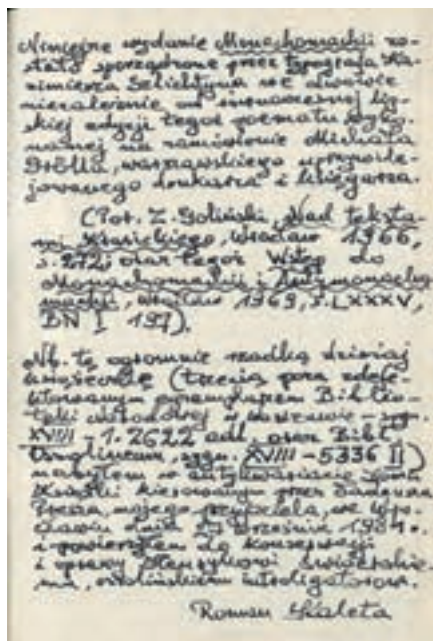 Niniejsze wydanie Monachomachii zo-
stało sporządzone przez typografa Ka-
zimierza Szlichtyna we Lwowie
niezależnie od równoczesnej
skiej edycji tegoż poematu wyko-
nanej na zamówienie Michała
Grölla, warszawskiego uprzywile-
jowanego drukarza i księgarza.
(Por. Z. Goliński, Nad teksta-
mi Krasickiego, Wrocław 1966,
s. 272; oraz tegoż Wstęp do
Monachomachii i Antymonacho-
machii, Wrocław 1969, s. LXXXV,
BN I 197).
Nb. tę ogromnie rzadką dzisiaj
książeczkę (trzecią poza zdefe-
ktowanym egzemplarzem Biblio-
teki Narodowej w Warszawie – sygn.
XVIII – 1.2622 adl. oraz Bibl.
Ossolineum, sygn. XVIII – 5336 II)
nabyłem w antykwariacie Domu
Książki kierowanym przez Tadeusza
mojego przyjaciela, we Wro-
cławiu dnia września
i powierzyłem do konserwacji
i oprawy
introligatorowi.
Roman Kaleta